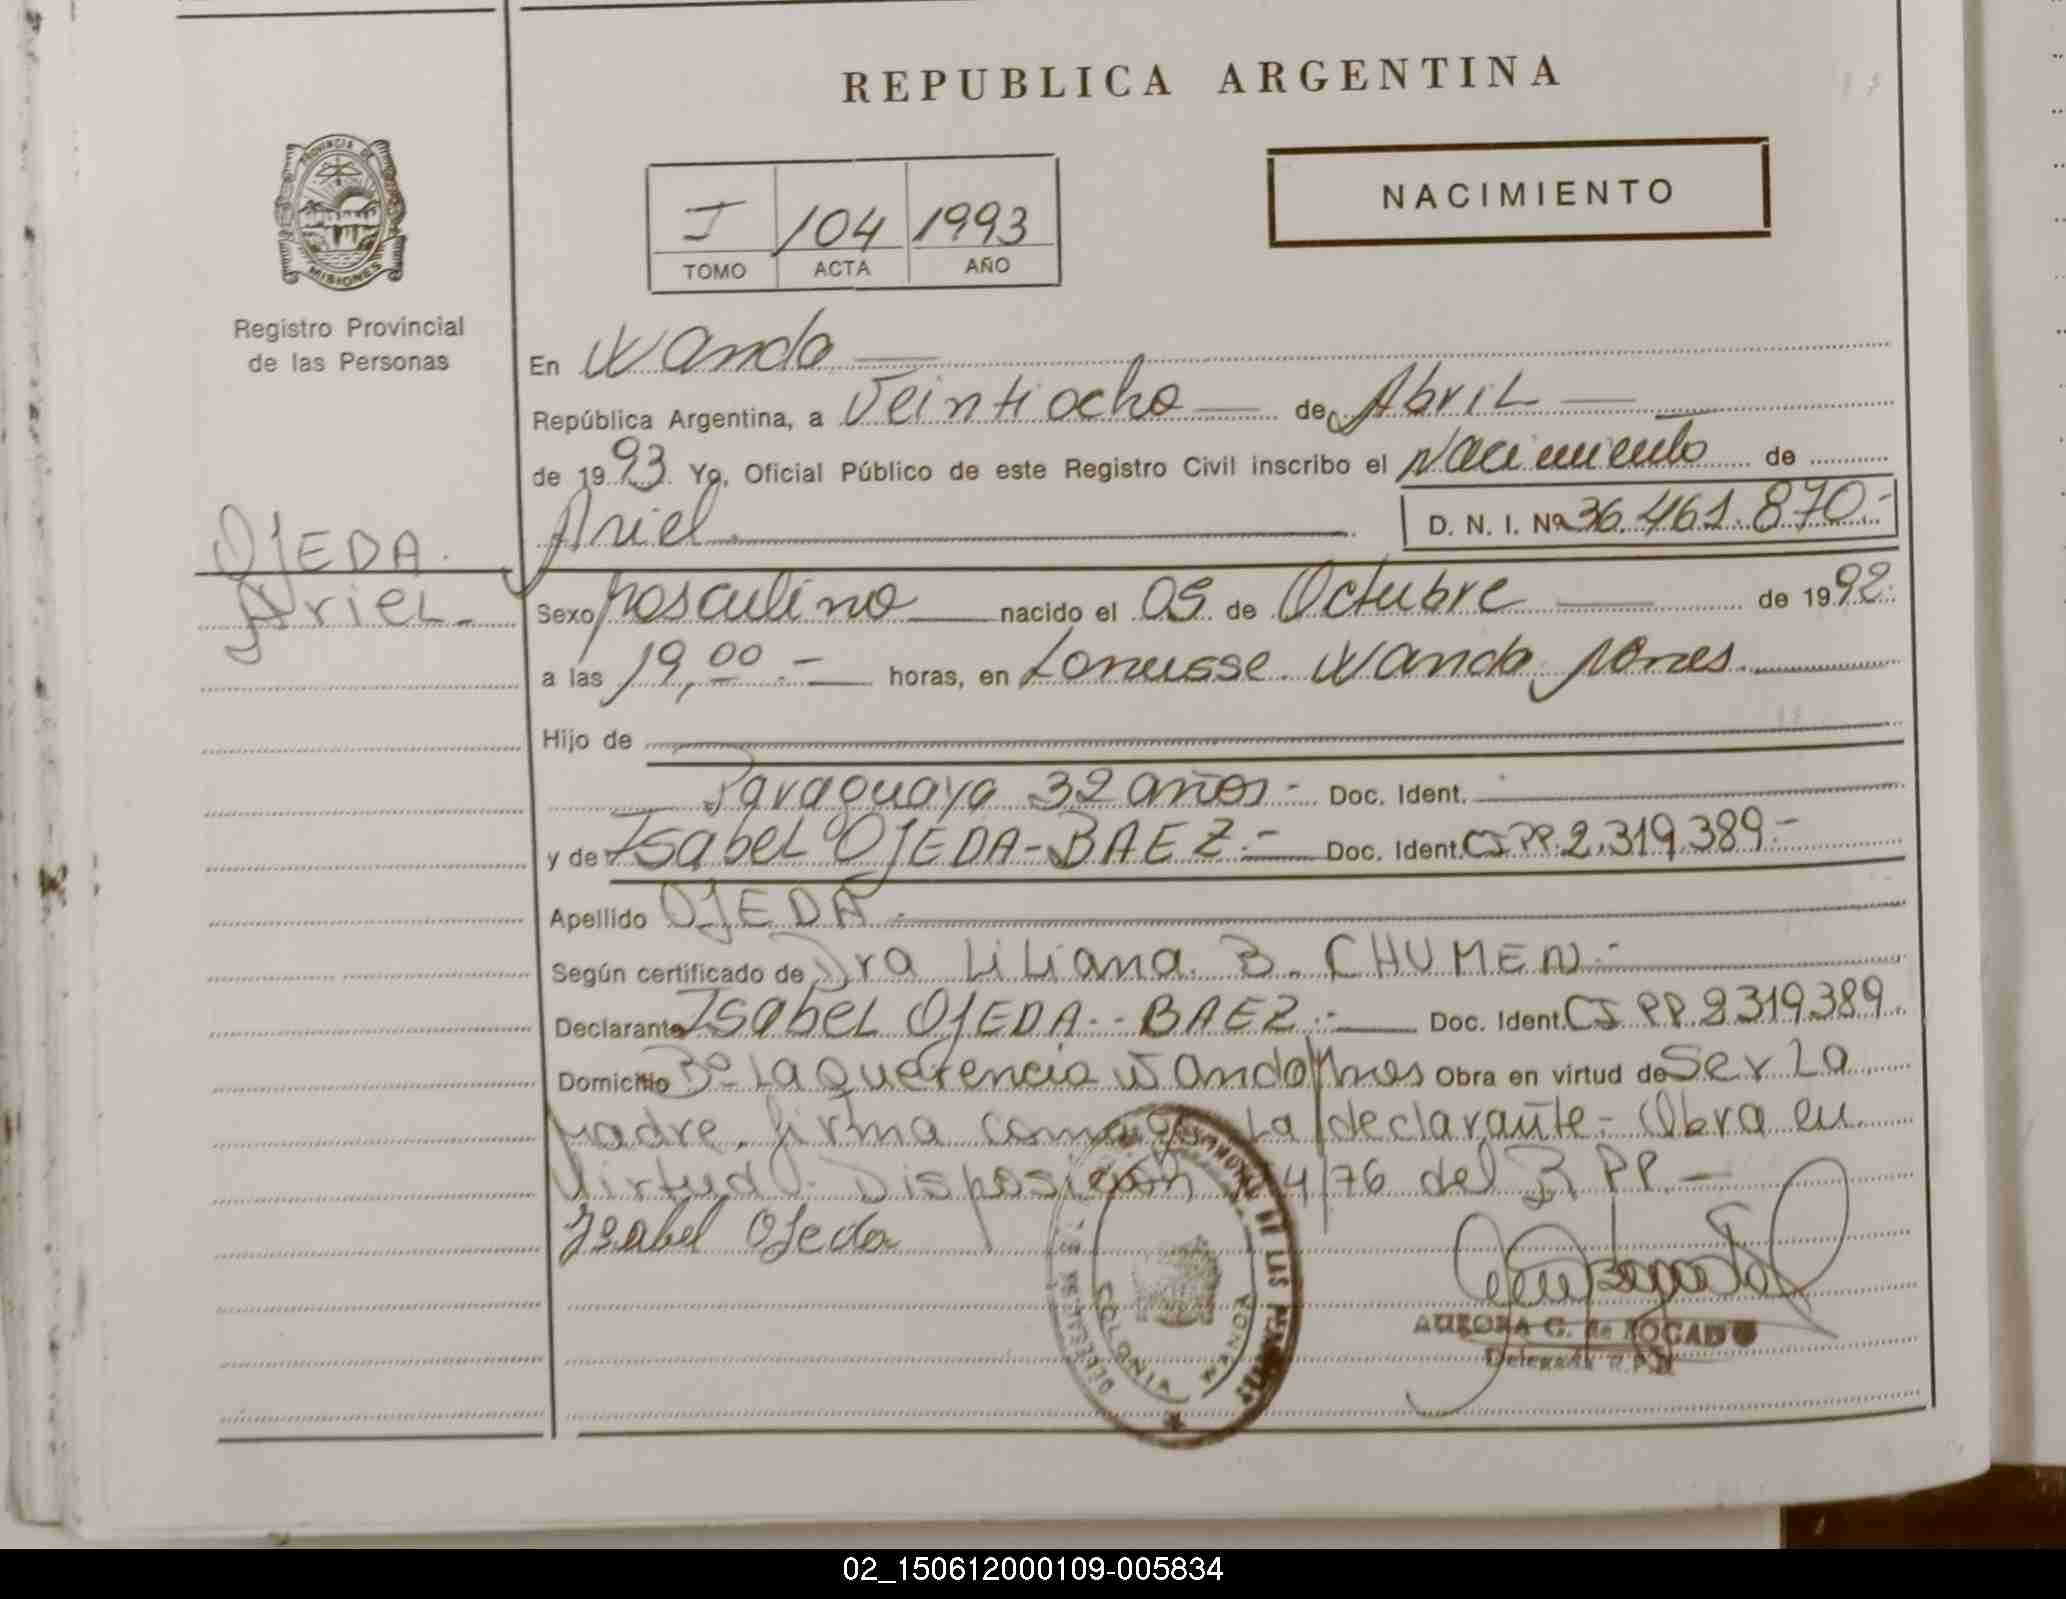 REPUBLICA ARGENTINA
PROVINCIA DE
MISIONES
Registro Provincial
de las Personas
I 104 1993
TOMO ACTA AÑO
NACIMIENTO
En Wanda
República Argentina, a Veintiocho de Abril
de 1993. Yo, Oficial Público de este Registro Civil inscribo el Nacimiento de
Ariel D. N. I. Nº 36.461.870.-
OJEDA.
Ariel.-
Sexo Masculino nacido el 09 de Octubre de 1992.
a las 19,00.- horas, en Lanusse. Wanda Mnes.
Hijo de
Paraguaya 32 años.- Doc. Ident.
y de Isabel OJEDA-BAEZ.- Doc. Ident. CI PP. 2.319.389.-
Apellido OJEDA.
Según certificado de Dra Liliana. B. CHUMEN.-
Declarante Isabel OJEDA.-BAEZ.- Doc. Ident. CI PP. 2319389.
Domicilio Bº La Querencia Wanda Mnes Obra en virtud de Ser La
Madre. firma conmigo La declarante.- Obra en
Virtud. Disposición 4/76 del R PP.-
Isabel Ojeda
DE LAS
COLONIA WANDA
AURORA C. de BOGADO
Delegada R.P.P.
02_150612000109-005834